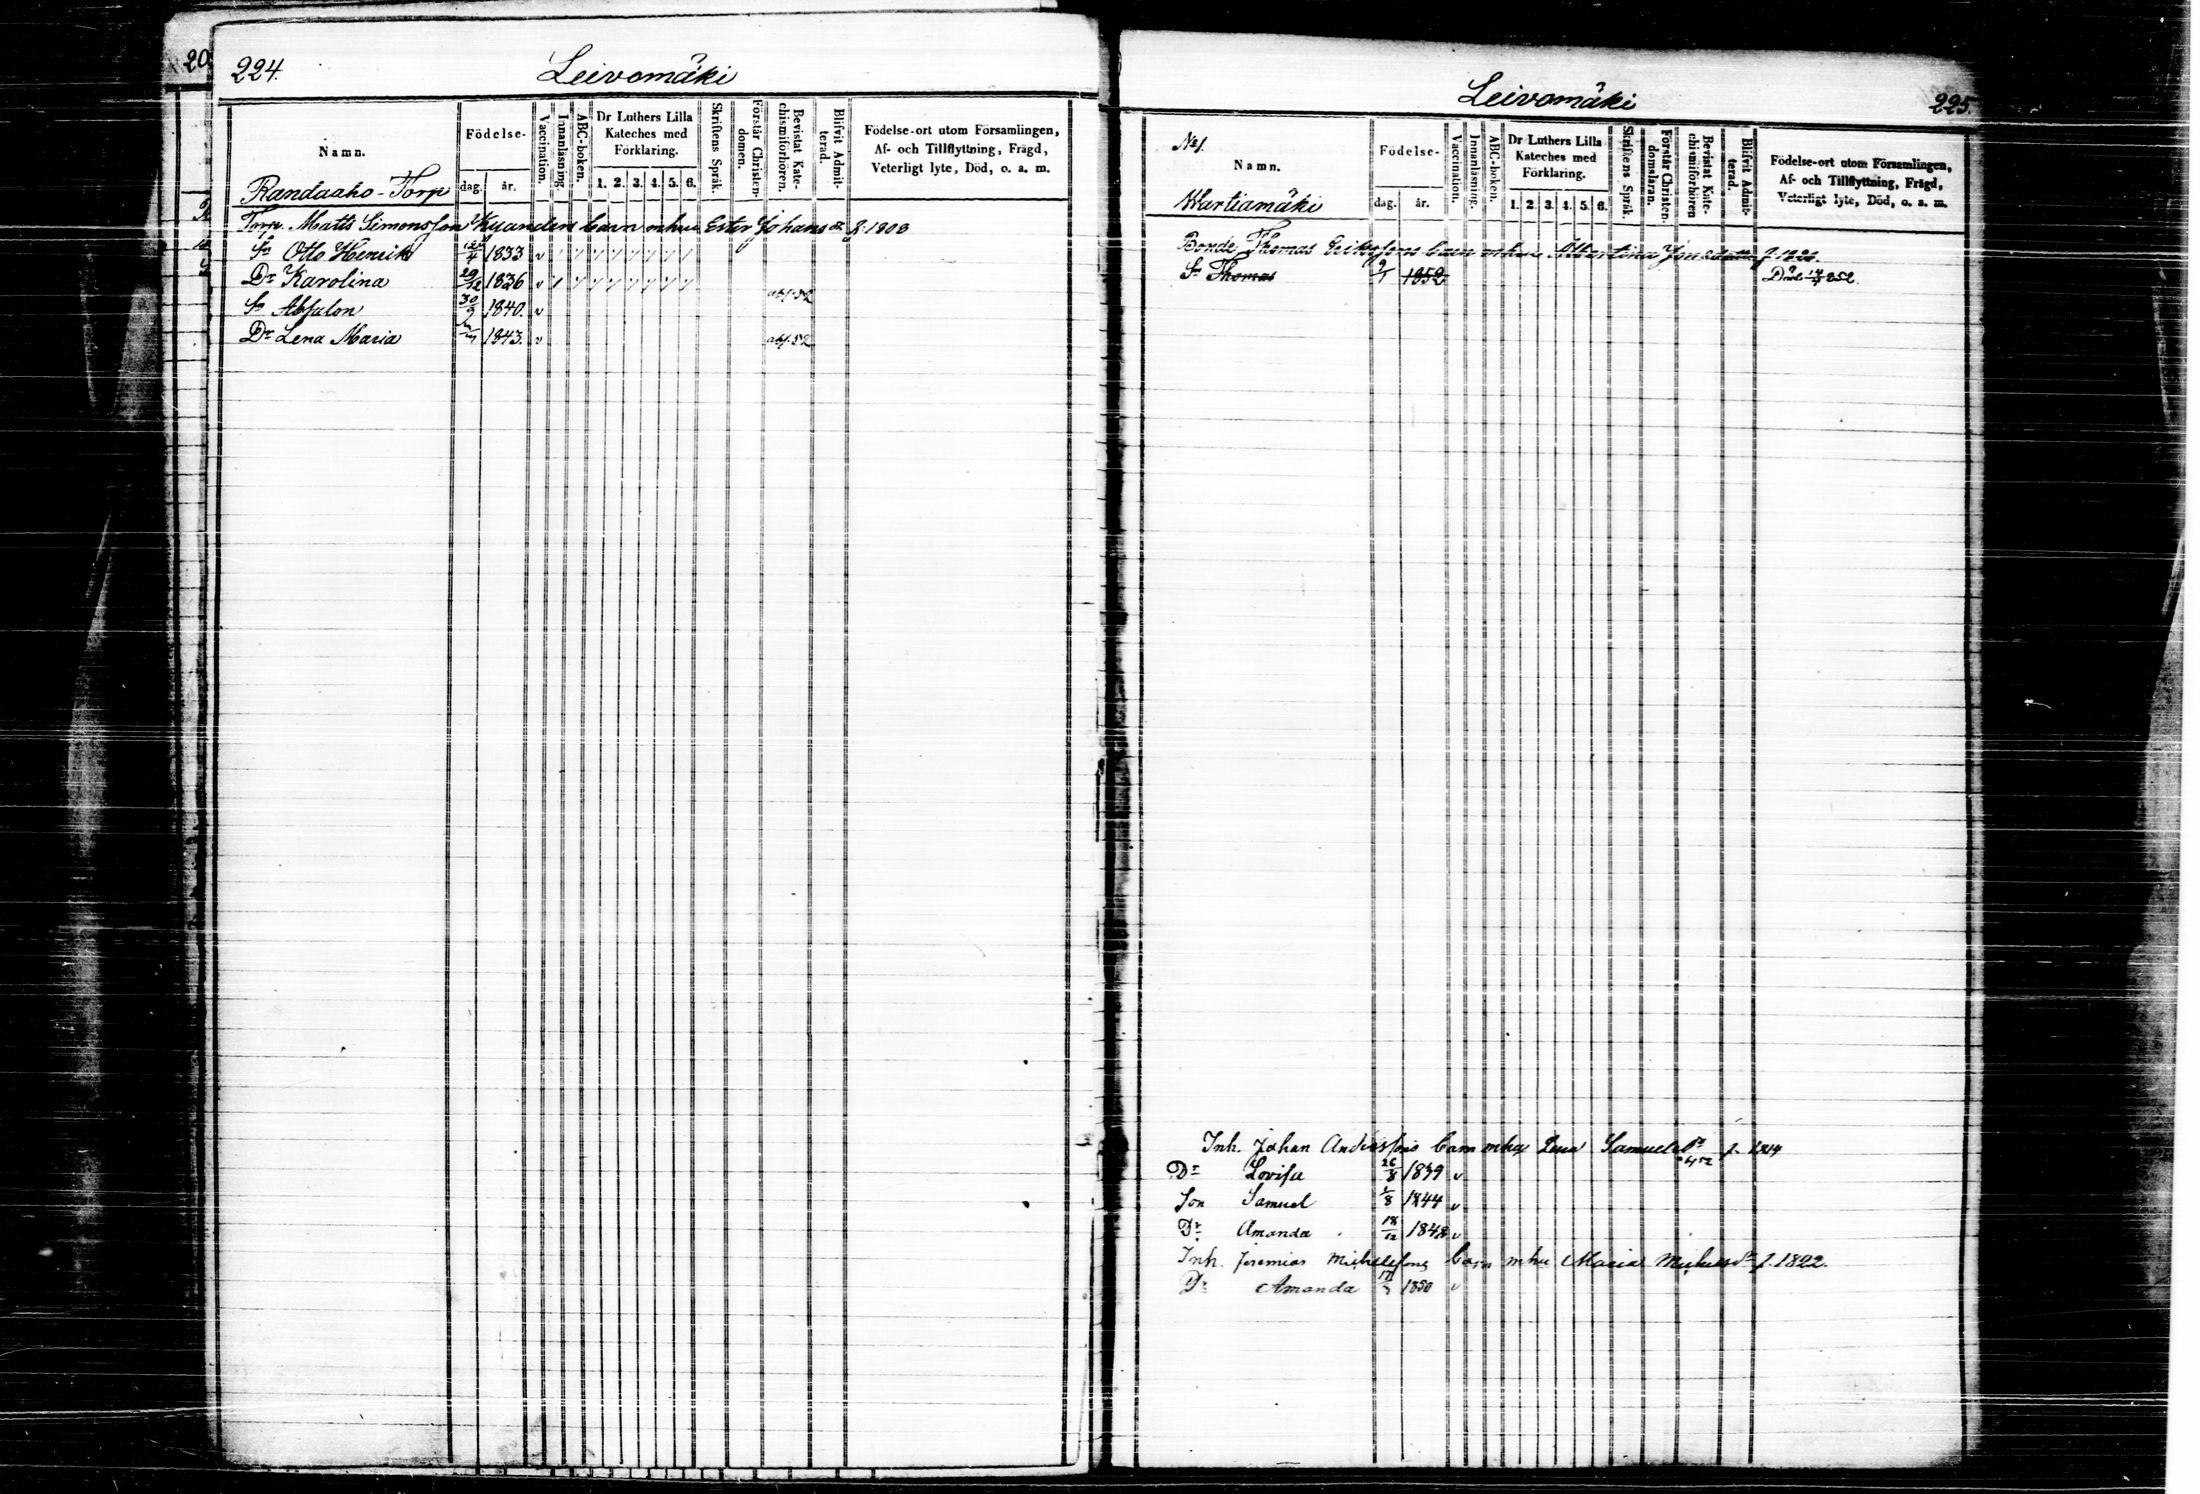 20
224.
Leivomäki
Namn.
Födelse-
dag. år.
Vaccination.
Innanläsning.
ABC-boken.
Dr Luthers Lilla Kateches med Förklaring.
1. 2. 3. 4. 5. 6.
Skriftens Språk.
Förstår Christendomen.
Bevistat Katechismiförhören.
Blifvit Admitterad.
Födelse-ort utom Församlingen, Af- och Tillflyttning, Frägd, Veterligt lyte, Död, o. a. m.
Randaaho-Torp
Torp. Matts Simonsson Kyanders barn mhu Ester Johans dr f. 1803
Sn Otto Henrik 1833 v
Dr Karolina 29/12 1836 v
Sn Absalon 30/9 1840. v abs. 52
Dr Lena Maria 1843. v abs. 52
Leivomäki
225.
No 1.
Namn.
Födelse-
dag. år.
Vaccination.
Innanläsning.
ABC-boken.
Dr Luthers Lilla Kateches med Förklaring.
1. 2. 3. 4. 5. 6.
Skriftens Språk.
Förstår Christendomsläran.
Bevistat Katechismiförhören
Blifvit Admitterad.
Födelse-ort utom Församlingen, Af- och Tillflyttning, Frägd, Veterligt lyte, Död, o. a. m.
Wartiamäki
Bonde Thomas Erikssons barn mhu Albertina Jonsdotter f. 1826.
Sn Thomas 9/1 1852 Död 852.
Inh. Johan Anderssons barn mhu Lena Samuels dr f. 1819
Dr Lovisa 26/8 1839 v
Son Samuel 1/8 1844 v
Dr Amanda 18/12 1848 v
Inh. Jeremias Michelssons barn mhu Maria Michelsdr f. 1822.
Dr Amanda 1850 v